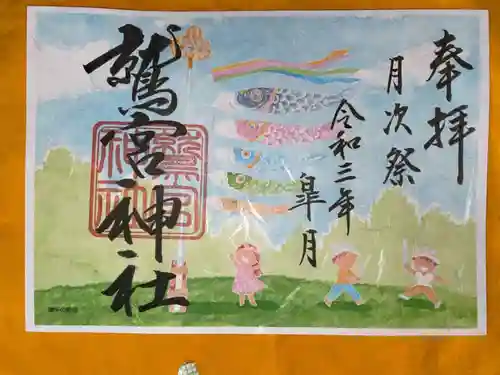 奉拝
月次祭
令和三年
皐月
鷲宮神社